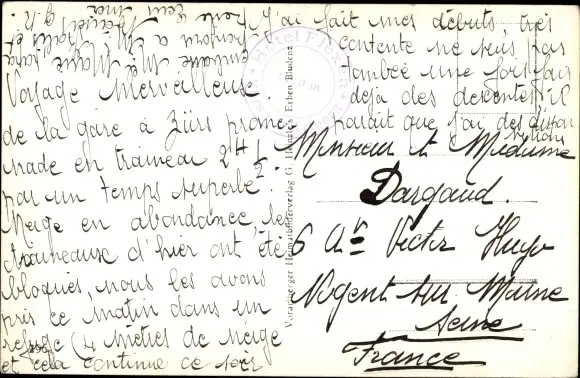 Voyage merveilleux
de la gare à Zürs prome
nade en traineau 2 H ½
par un temps superbe.
Neige en abondance, les
traineaux d'hier ont été
bloqués, nous les avons
pris ce matin dans un
refuge (4 mètres de neige
et cela continue ce soir
J'ai fait mes débuts, très
contente ne suis pas
tombée une fois fais
déjà des descentes, il
parait que j'ai des dispo
sitions
Hotel Flexen
Vorarlberger Heimatbilderverlag G. Heinzle's Erben Bludenz
Monsieur et Madame
Dargaud.
6 Ave Victor Hugo
Nogent sur Marne
Seine
France